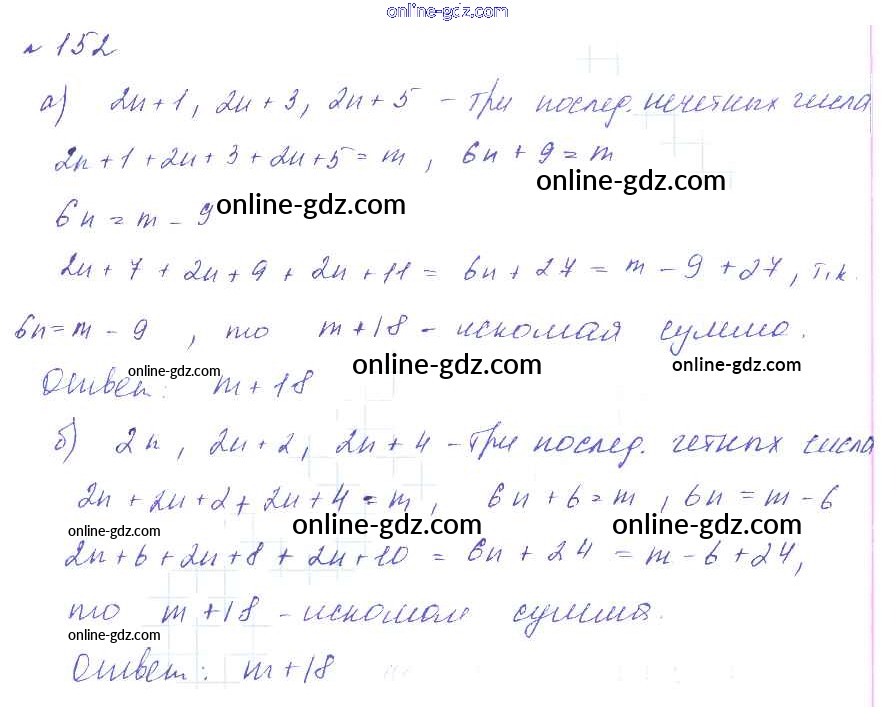 online-gdz.com
№ 152
а) 2n+1, 2n+3, 2n+5 - три послед. нечетных числа
2n+1+2n+3+2n+5=m, 6n+9=m
online-gdz.com
6n=m-9
online-gdz.com
2n+7+2n+9+2n+11=6n+27=m-9+27, т.к.
6n=m-9, то m+18 - искомая сумма.
online-gdz.com online-gdz.com online-gdz.com
Ответ: m+18
б) 2n, 2n+2, 2n+4 - три послед. четных числа
2n+2n+2+2n+4=m, 6n+6=m, 6n=m-6
online-gdz.com online-gdz.com online-gdz.com
2n+6+2n+8+2n+10=6n+24=m-6+24,
то m+18 - искомая сумма.
online-gdz.com
Ответ: m+18